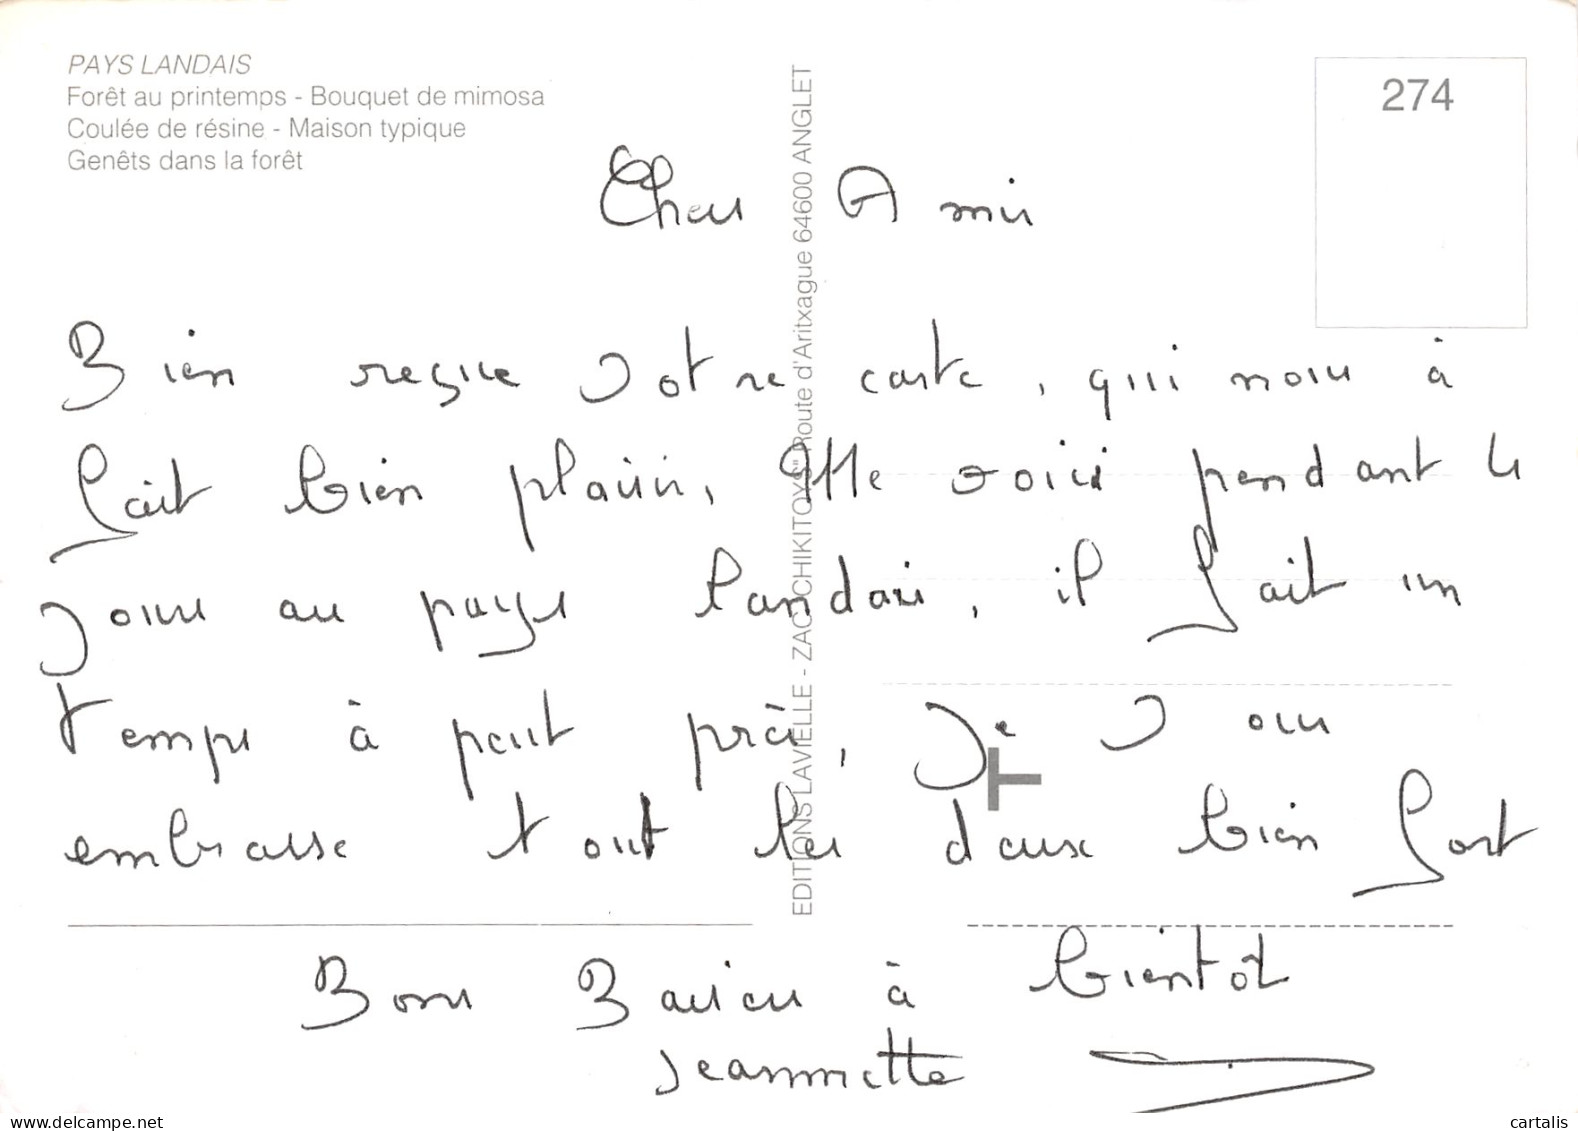 PAYS LANDAIS
Forêt au printemps - Bouquet de mimosa
Coulée de résine - Maison typique
Genêts dans la forêt
274
EDITIONS LAVIELLE - ZAC ACHIKITOYS" Route d'Aritxague 64600 ANGLET
Cher Amis
Bien reçue votre carte, qui nous à
fait bien plaisir, Me voici pendant 4
jours au pays landais, il fait un
temps à peut près, Je vous
embrasse tout les deux bien fort
Bons Baisers à bientôt
Jeannette
T
www.delcampe.net
cartalis